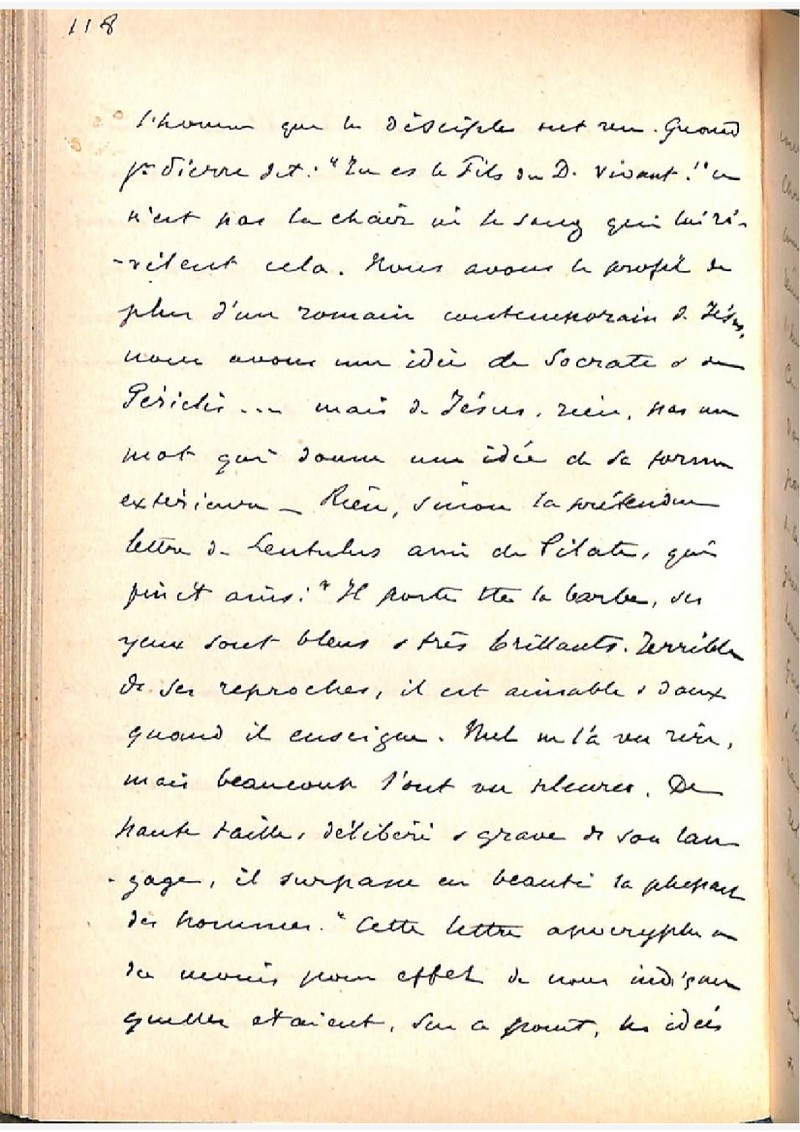 118
l'homme que les disciples ont vu. Quand
St Pierre dit : "Tu es le Fils du D. vivant !" ce
n'est pas la chair ni le sang qui lui ré-
-vèlent cela. Nous avons le profil de
plus d'un romain contemporain de Jésus,
nous avons une idée de Socrate & de
Périclès ... mais de Jésus, rien, pas un
mot qui donne une idée de sa forme
extérieure – Rien, sinon la prétendue
lettre de Lentulus ami de Pilate, qui
peint ainsi : "Il porte tte la barbe, ses
yeux sont bleus & très brillants. Terrible
ds ses reproches, il est aimable & doux
quand il enseigne. Nul ne l'a vu rire,
mais beaucoup l'ont vu pleurer. De
haute taille, délibéré & grave ds son lan-
-gage, il surpasse en beauté la plupart
des hommes." Cette lettre apocryphe a
du moins pour effet de nous indiquer
quelles étaient, sur ce point, les idées